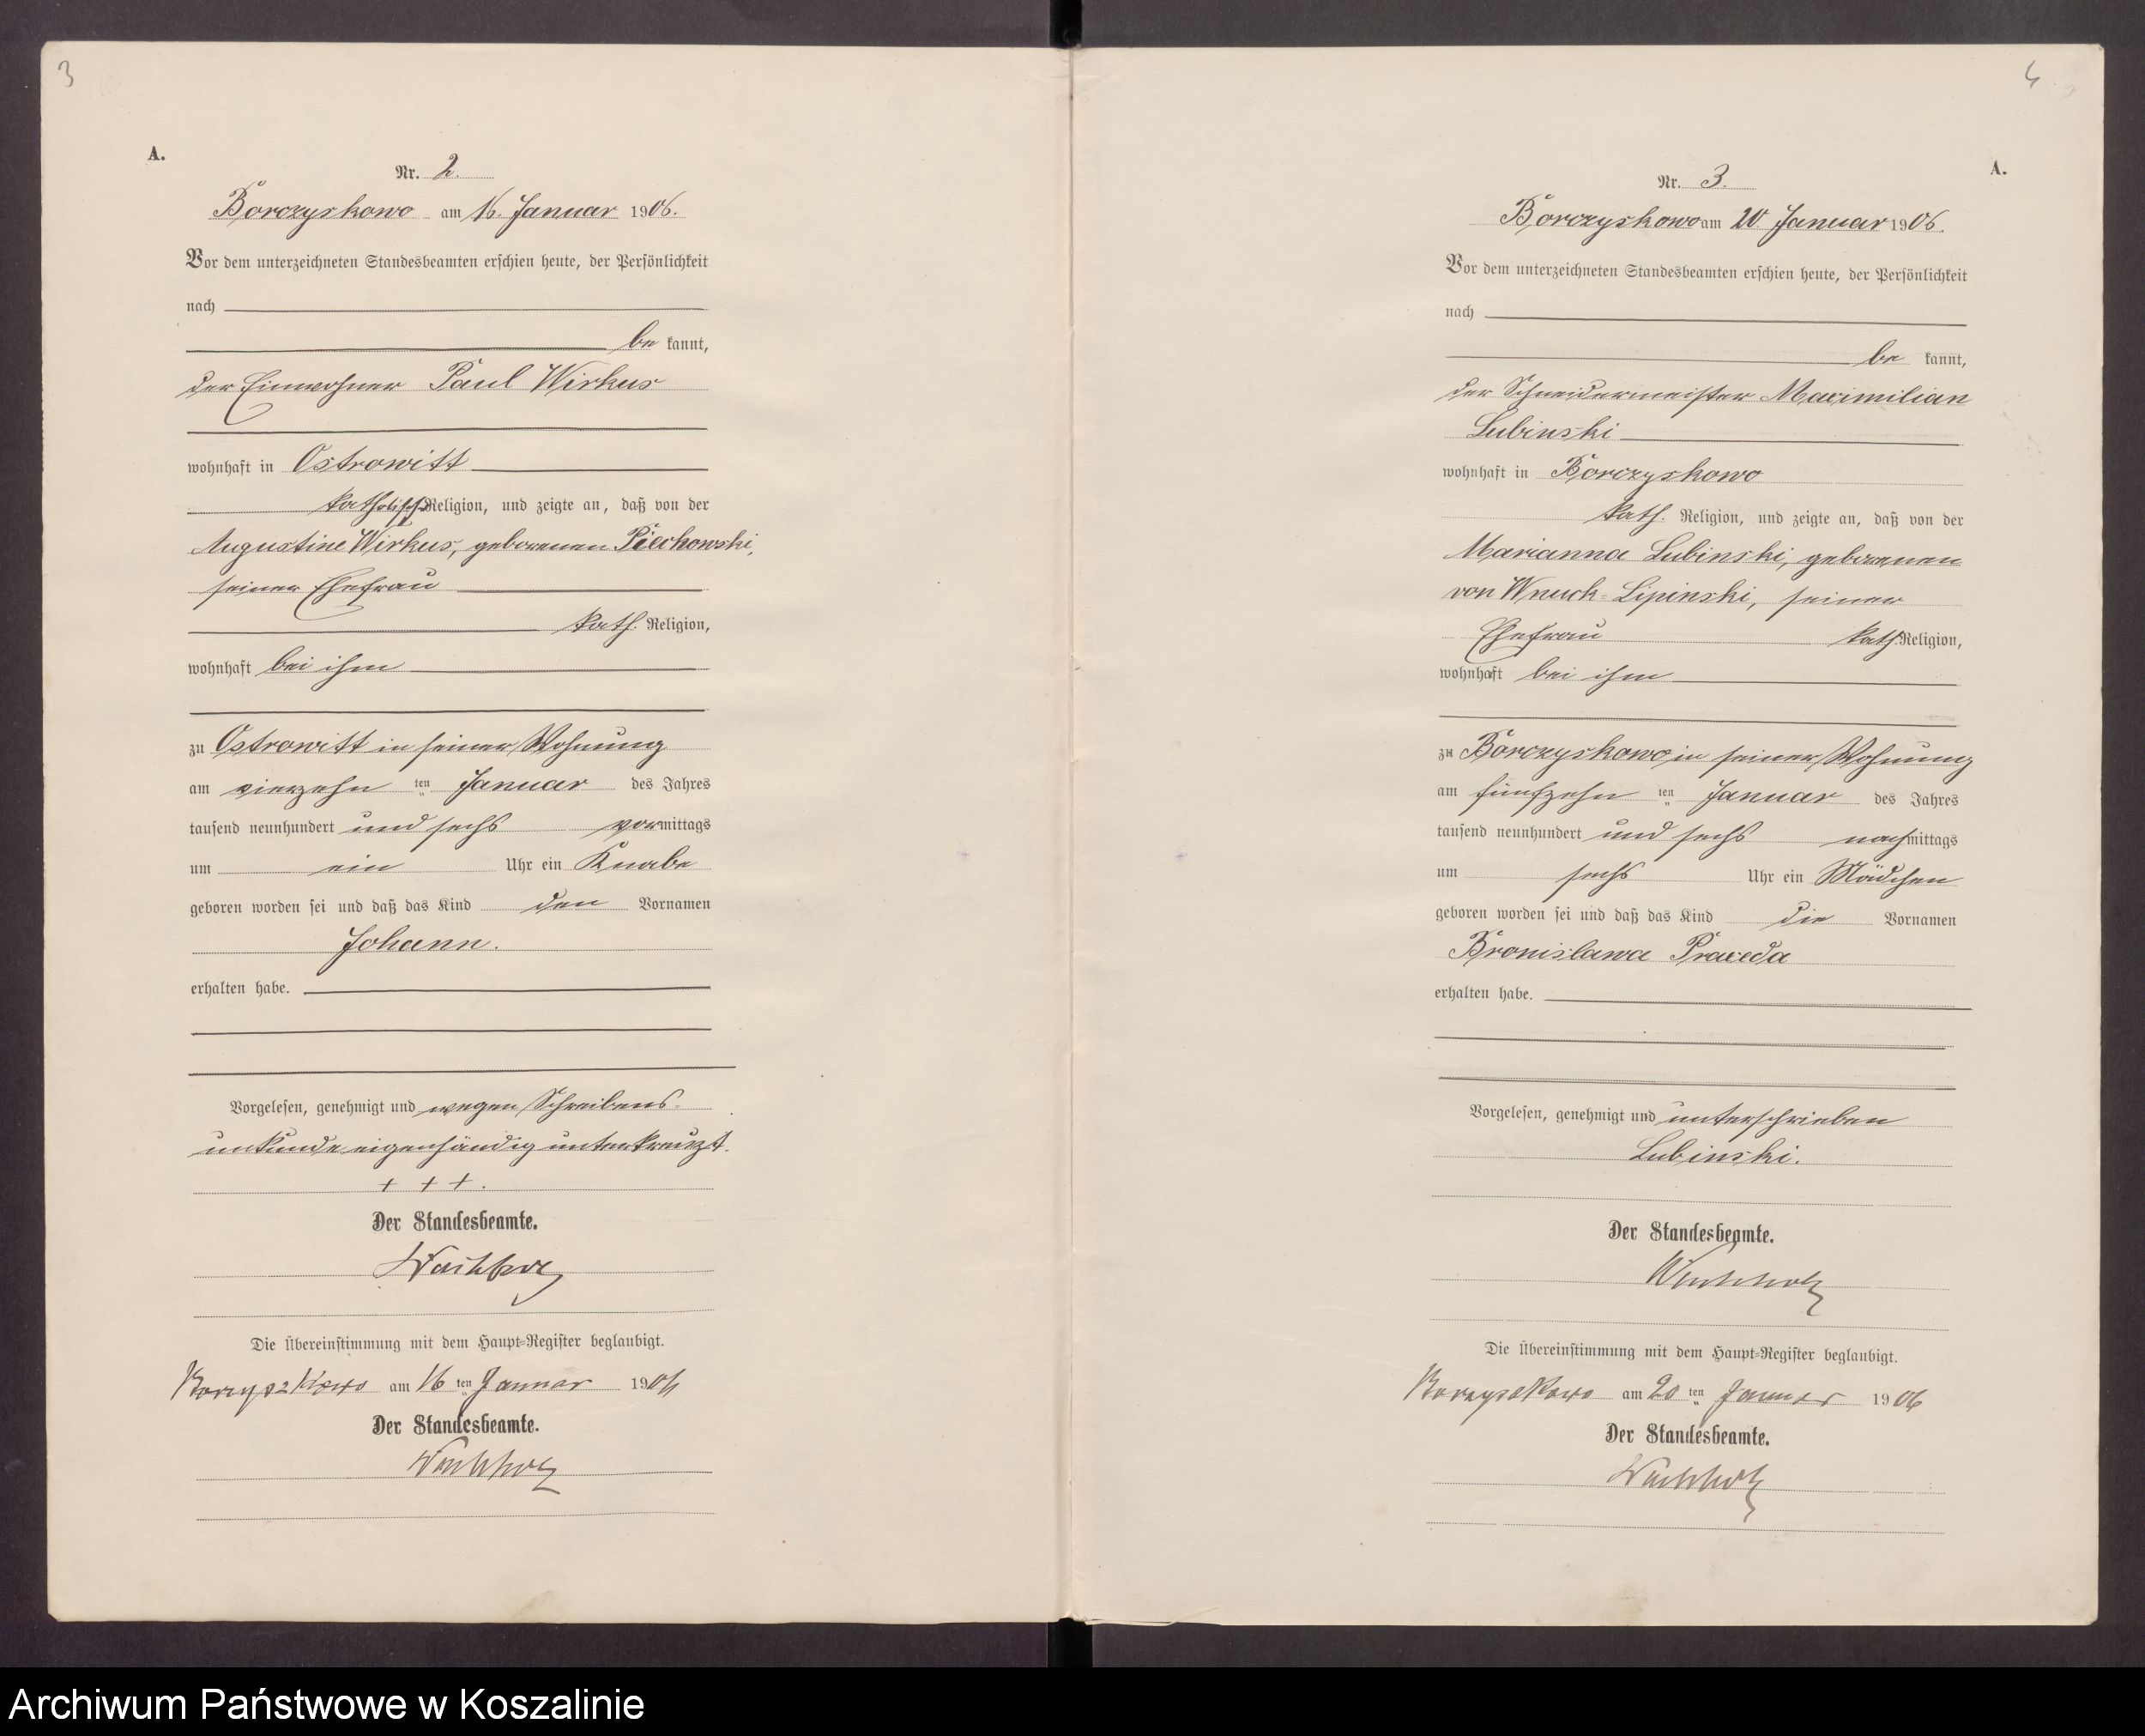 3
A.
Nr. 2.
Borczyskowo am 16. Januar 1906.
Vor dem unterzeichneten Standesbeamten erschien heute, der Persönlichkeit
nach
be kannt,
der Einwohner Paul Wirkus
wohnhaft in Ostrowitt
katholischer Religion, und zeigte an, daß von der
Augustine Wirkus, geborenen Piechowski,
seiner Ehefrau
kath. Religion,
wohnhaft bei ihm
zu Ostrowitt in seiner Wohnung
am vierzehn ten Januar des Jahres
tausend neunhundert und sechs vormittags
um ein Uhr ein Knabe
geboren worden sei und daß das Kind den Vornamen
Johann.
erhalten habe.
Vorgelesen, genehmigt und wegen Schreibens-
unkunde eigenhändig unterkreuzt.
+ + +.
Der Standesbeamte.
Wachholz
Die Übereinstimmung mit dem Haupt-Register beglaubigt.
Borczyskowo am 16 ten Januar 1906
Der Standesbeamte.
Wachholz
4
A.
Nr. 3.
Borczyskowo am 20. Januar 1906.
Vor dem unterzeichneten Standesbeamten erschien heute, der Persönlichkeit
nach
be kannt,
der Schneidermeister Maximilian
Lubinski
wohnhaft in Borczyskowo
kath. Religion, und zeigte an, daß von der
Marianna Lubinski, geborenen
von Wnuck-Lipinski, seiner
Ehefrau kath. Religion,
wohnhaft bei ihm
zu Borczyskowo in seiner Wohnung
am fünfzehn ten Januar des Jahres
tausend neunhundert und sechs nachmittags
um sechs Uhr ein Mädchen
geboren worden sei und daß das Kind die Vornamen
Bronislawa Praxeda
erhalten habe.
Vorgelesen, genehmigt und unterschrieben
Lubinski.
Der Standesbeamte.
Wachholz
Die Übereinstimmung mit dem Haupt-Register beglaubigt.
Borczyskowo am 20 ten Januar 1906
Der Standesbeamte.
Wachholz
Archiwum Państwowe w Koszalinie